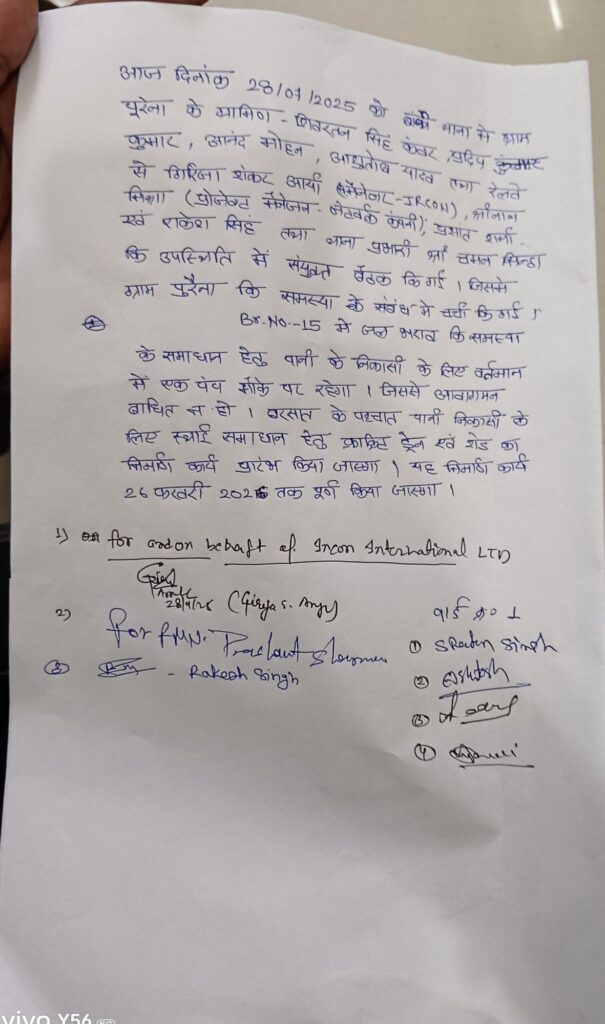 आज दिनांक 28/07/2025 को बांकी थाना में ग्राम
पुरेना के ग्रामिण - शिवरतन सिंह कंवर, प्रदिप
कुमार, आनंद मोहन, आशुतोष यादव तथा रेलवे
से गिरिजा शंकर आर्या (मैनेजर-IRCON),
मिश्रा (प्रोजेक्ट मैनेजर - नेटवर्क कंपनी), प्रशांत शर्मा
एवं राकेश सिंह तथा थाना प्रभारी श्री चमन सिन्हा
कि उपस्थिति में संयुक्त बैठक कि गई । जिसमें
ग्राम पुरैना कि समस्या के संबंध में चर्चा कि गई ।
Br.No.-15 में जल भराव कि समस्या
के समाधान हेतु पानी के निकासी के लिए वर्तमान
में एक पंप मौके पर रहेगा । जिससे आवागमन
बाधित न हो । बरसात के पश्चात पानी निकासी के
लिए स्थाई समाधान हेतु क्रांक्रिट ड्रेन एवं शेड का
निर्माण कार्य प्रारंभ किया जाएगा । यह निर्माण कार्य
26 फरवरी 2026 तक पूर्ण किया जाएगा ।
1) for and on behalf of Ircon International LTD
(Girija S. Arya)
2) For Prashant Sharma
वार्ड क्र० 1
① SRatan Singh
③ - Rakesh Singh
② Ashutosh
③
④
vivo Y56